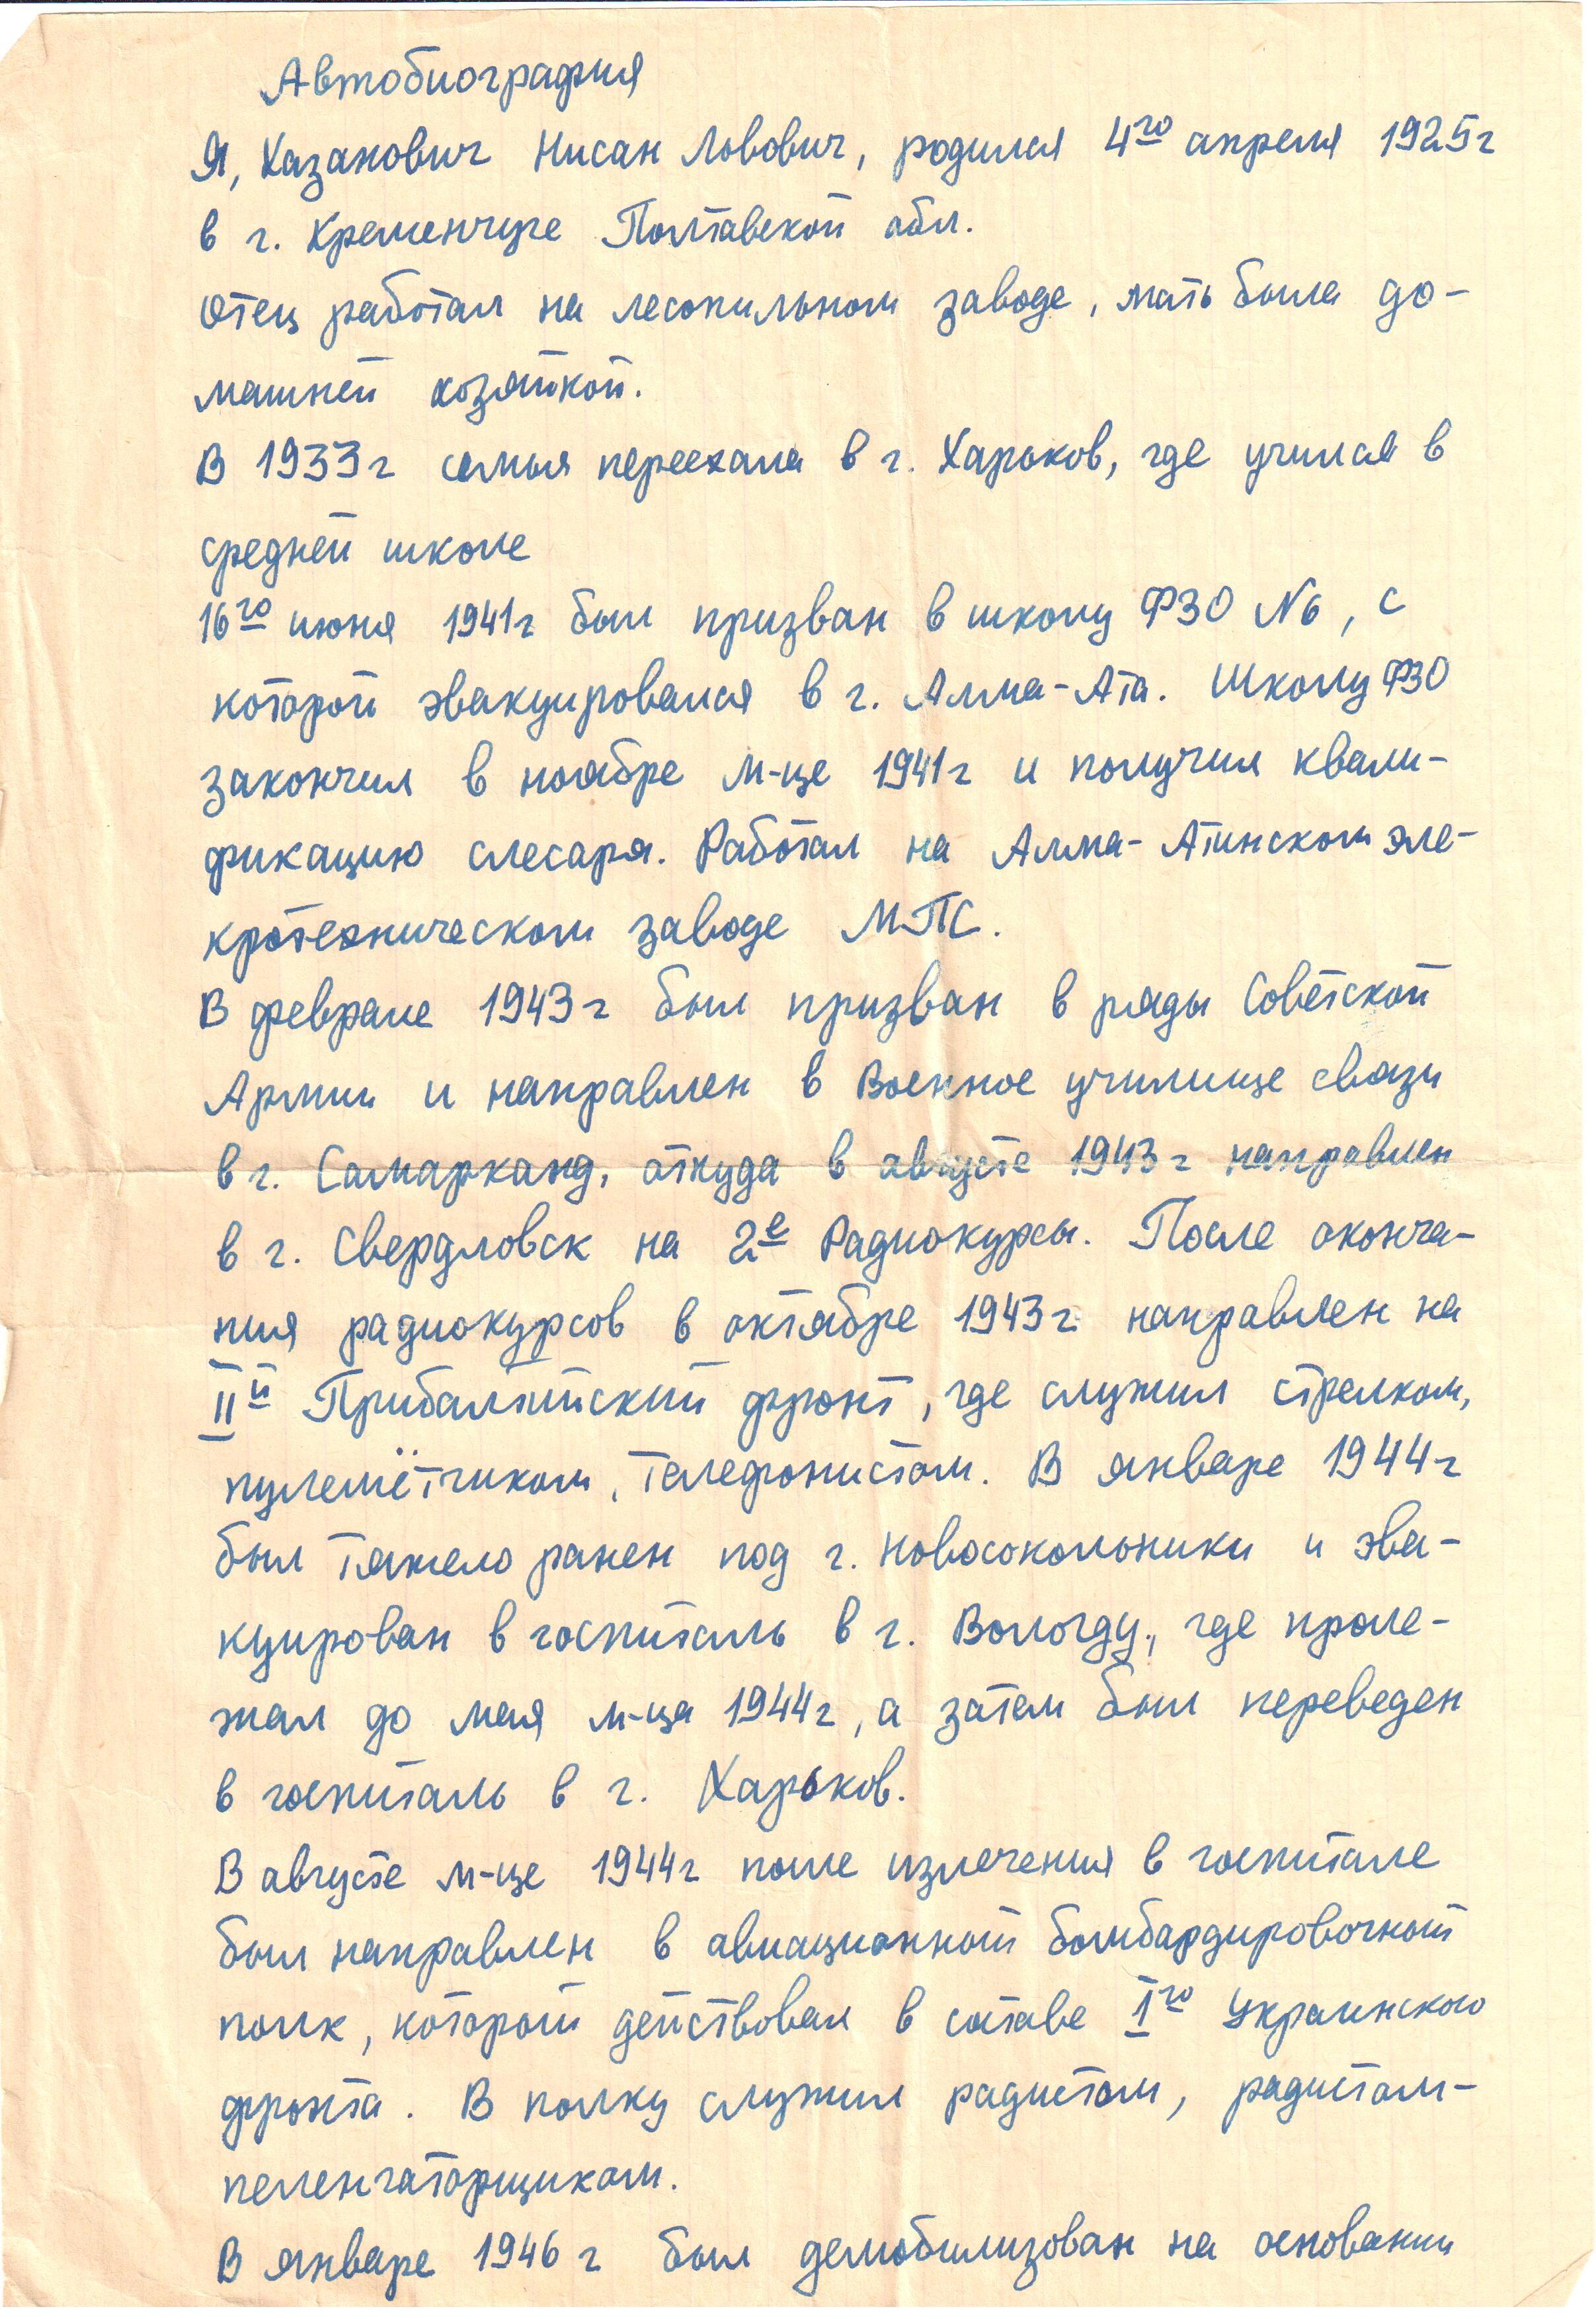 Автобиография
Я, Хазанович Нисан Львович, родился 4го апреля 1925г
в г. Кременчуге Полтавской обл.
Отец работал на лесопильном заводе, мать была до-
машней хозяйкой.
В 1933г семья переехала в г. Харьков, где учился в
средней школе
16го июня 1941г был призван в школу ФЗО №6, с
которой эвакуировался в г. Алма-Ата. Школу ФЗО
закончил в ноябре м-це 1941г и получил квали-
фикацию слесаря. Работал на Алма-Атинском эле-
кротехническом заводе МПС.
В феврале 1943г был призван в ряды Советской
Армии и направлен в Военное училище связи
в г. Самарканд, откуда в августе 1943г направлен
в г. Свердловск на 2е Радиокурсы. После оконча-
ния радиокурсов в октябре 1943г направлен на
IIй Прибалтийский фронт, где служил стрелком,
пулемётчиком, телефонистом. В январе 1944г
был тяжело ранен под г. Новосокольники и эва-
куирован в госпиталь в г. Вологду, где проле-
жал до мая м-ца 1944г, а затем был переведен
в госпиталь в г. Харьков.
В августе м-це 1944г после излечения в госпитале
был направлен в авиационный бомбардировочный
полк, который действовал в составе Iго Украинского
фронта. В полку служил радистом, радистом-
пеленгаторщиком.
В январе 1946г был демобилизован на основании